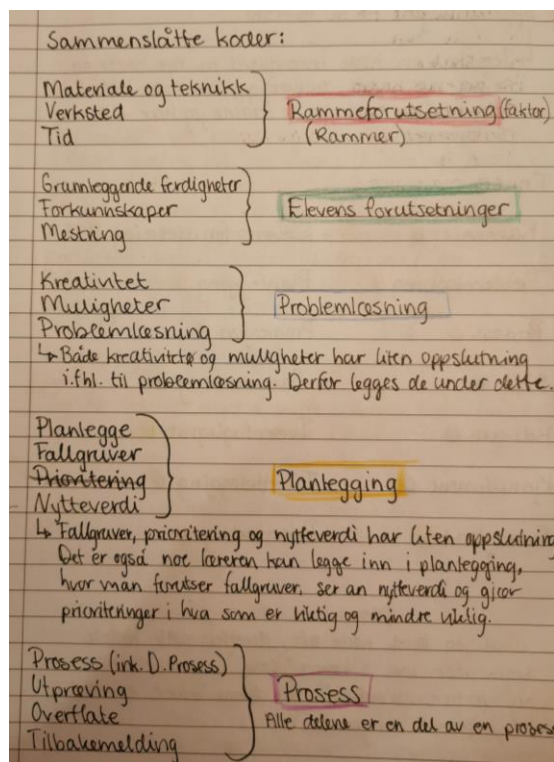 Sammenslåtte koder:
Materiale og teknikk
Verksted
Tid
Rammeforutsetning (faktor)
(Rammer)
Grunnleggende ferdigheter
Forkunnskaper
Mestring
Elevens forutsetninger
Kreativitet
Muligheter
Problemløsning
Problemløsning
↳ Både kreativitet og muligheter har liten oppslutning
i.fhl. til problemløsning. Derfor legges de under dette.
Planlegge
Fallgruver
Prioritering
Nytteverdi
Planlegging
↳ Fallgruver, prioritering og nytteverdi har liten oppslutning
Det er også noe læreren kan legge inn i planlegging,
hvor man forutser fallgruver, ser an nytteverdi og gjør
prioriteringer i hva som er viktig og mindre viktig.
Prosess (ink. D. Prosess)
Utprøving
Overflate
Tilbakemelding
Prosess
Alle delene er en del av en prosess